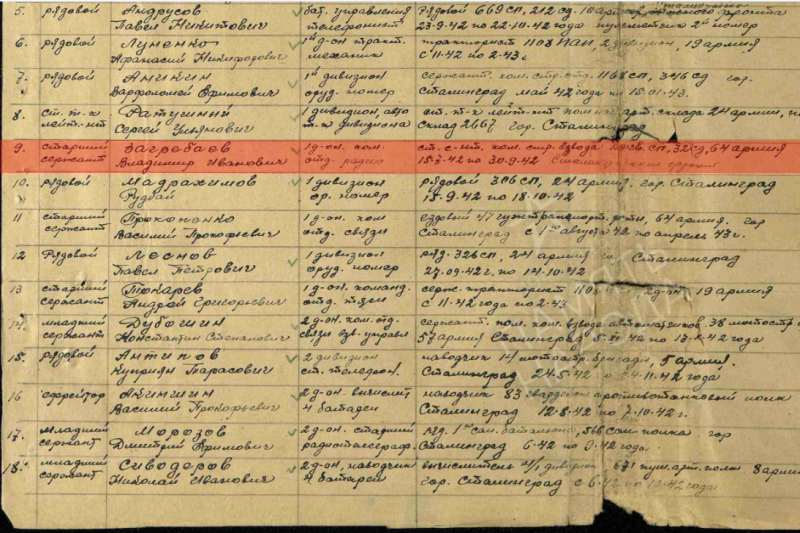 5. рядовой Андрусов Павел Никитович бат. управления телефонист рядовой 669 СП, 212 сд.
23-9-42 по 22-10-42 года номер
6. рядовой Луненко Афанасий Никифорович 1й д-он тракт. механик тракторист 1103 19 армия
с 11-42 по 2-43 г.
7. рядовой Аникин Варфоломей Ефимович 1й дивизион оруд. номер сержант. ком. стр. отд. 1168 СП, 346 сд гор.
Сталинград май 42 года по 15-01-43.
8. ст. т-к лейт-нт Ратушный Сергей 1 дивизион, авто т-к дивизиона ст. т-к лейт-нт арт. склада 24 армии,
склад 2667 гор. Сталинград
9. старший сержант Загребаев Владимир Иванович 1 д-он. ком. отд. радио ст. с-нт. ком. стр. взвода СП, сд, 64 армия
15-7-42 по 30-9-42
10. рядовой Мадрахимов Рузбай 1 дивизион ор. номер рядовой 306 СП, 24 армия. гор. Сталинград
15-9-42 по 18-10-42
11 старший сержант Прокопенко Василий Прокофьевич 1 д-он. ком отд. связи ездовой 47 роты, 64 армия. гор
Сталинград с 1го августа 42 по апрель 43 г.
12 Рядовой Леснов Павел Петрович 1 дивизион оруд. номер ряд. 326 СП, 24 армия гор. Сталинград
27-09-42 г. по 14-10-42
13 старший сержант Токарев Андрей Григорьевич 1 д-он. команд. отд. тяги серж. тракторист 19 армия
с 11-42 года по 2-43
14. младший сержант Дубошин Константин Степанович 2 д-он. ком. отд. связи взв. управл сержант. пом. ком. взвода автоматчиков. 38 мотостр.
57 армия Сталинград по 42 года
15. рядовой Антипов Куприян Тарасович 2 дивизион ст. телефон. наводчик 14 мотостр. бригады, 5 армия.
Сталинград 24-5-42 по 42 года
16 ефрейтор Акиншин Василий Прокофьевич 2 д-он. вычислит 4 батареи наводчик 83 гвардейск противотанковый полк
Сталинград 12-8-42 по 7-10-42 г.
17. младший сержант Морозов Дмитрий Ефимович 2 д-он. старший радиотелеграф. ряд. 1й сап. батальона, полка гор
Сталинград 6-42 по 9-42 года
18. младший сержант Сиводеров Николай Иванович 2 д-он, наводчик 4 батареи вычислитель дивизион, 671 пуш. арт. полк 8 армия
гор. Сталинград с 6-42 по 42 года